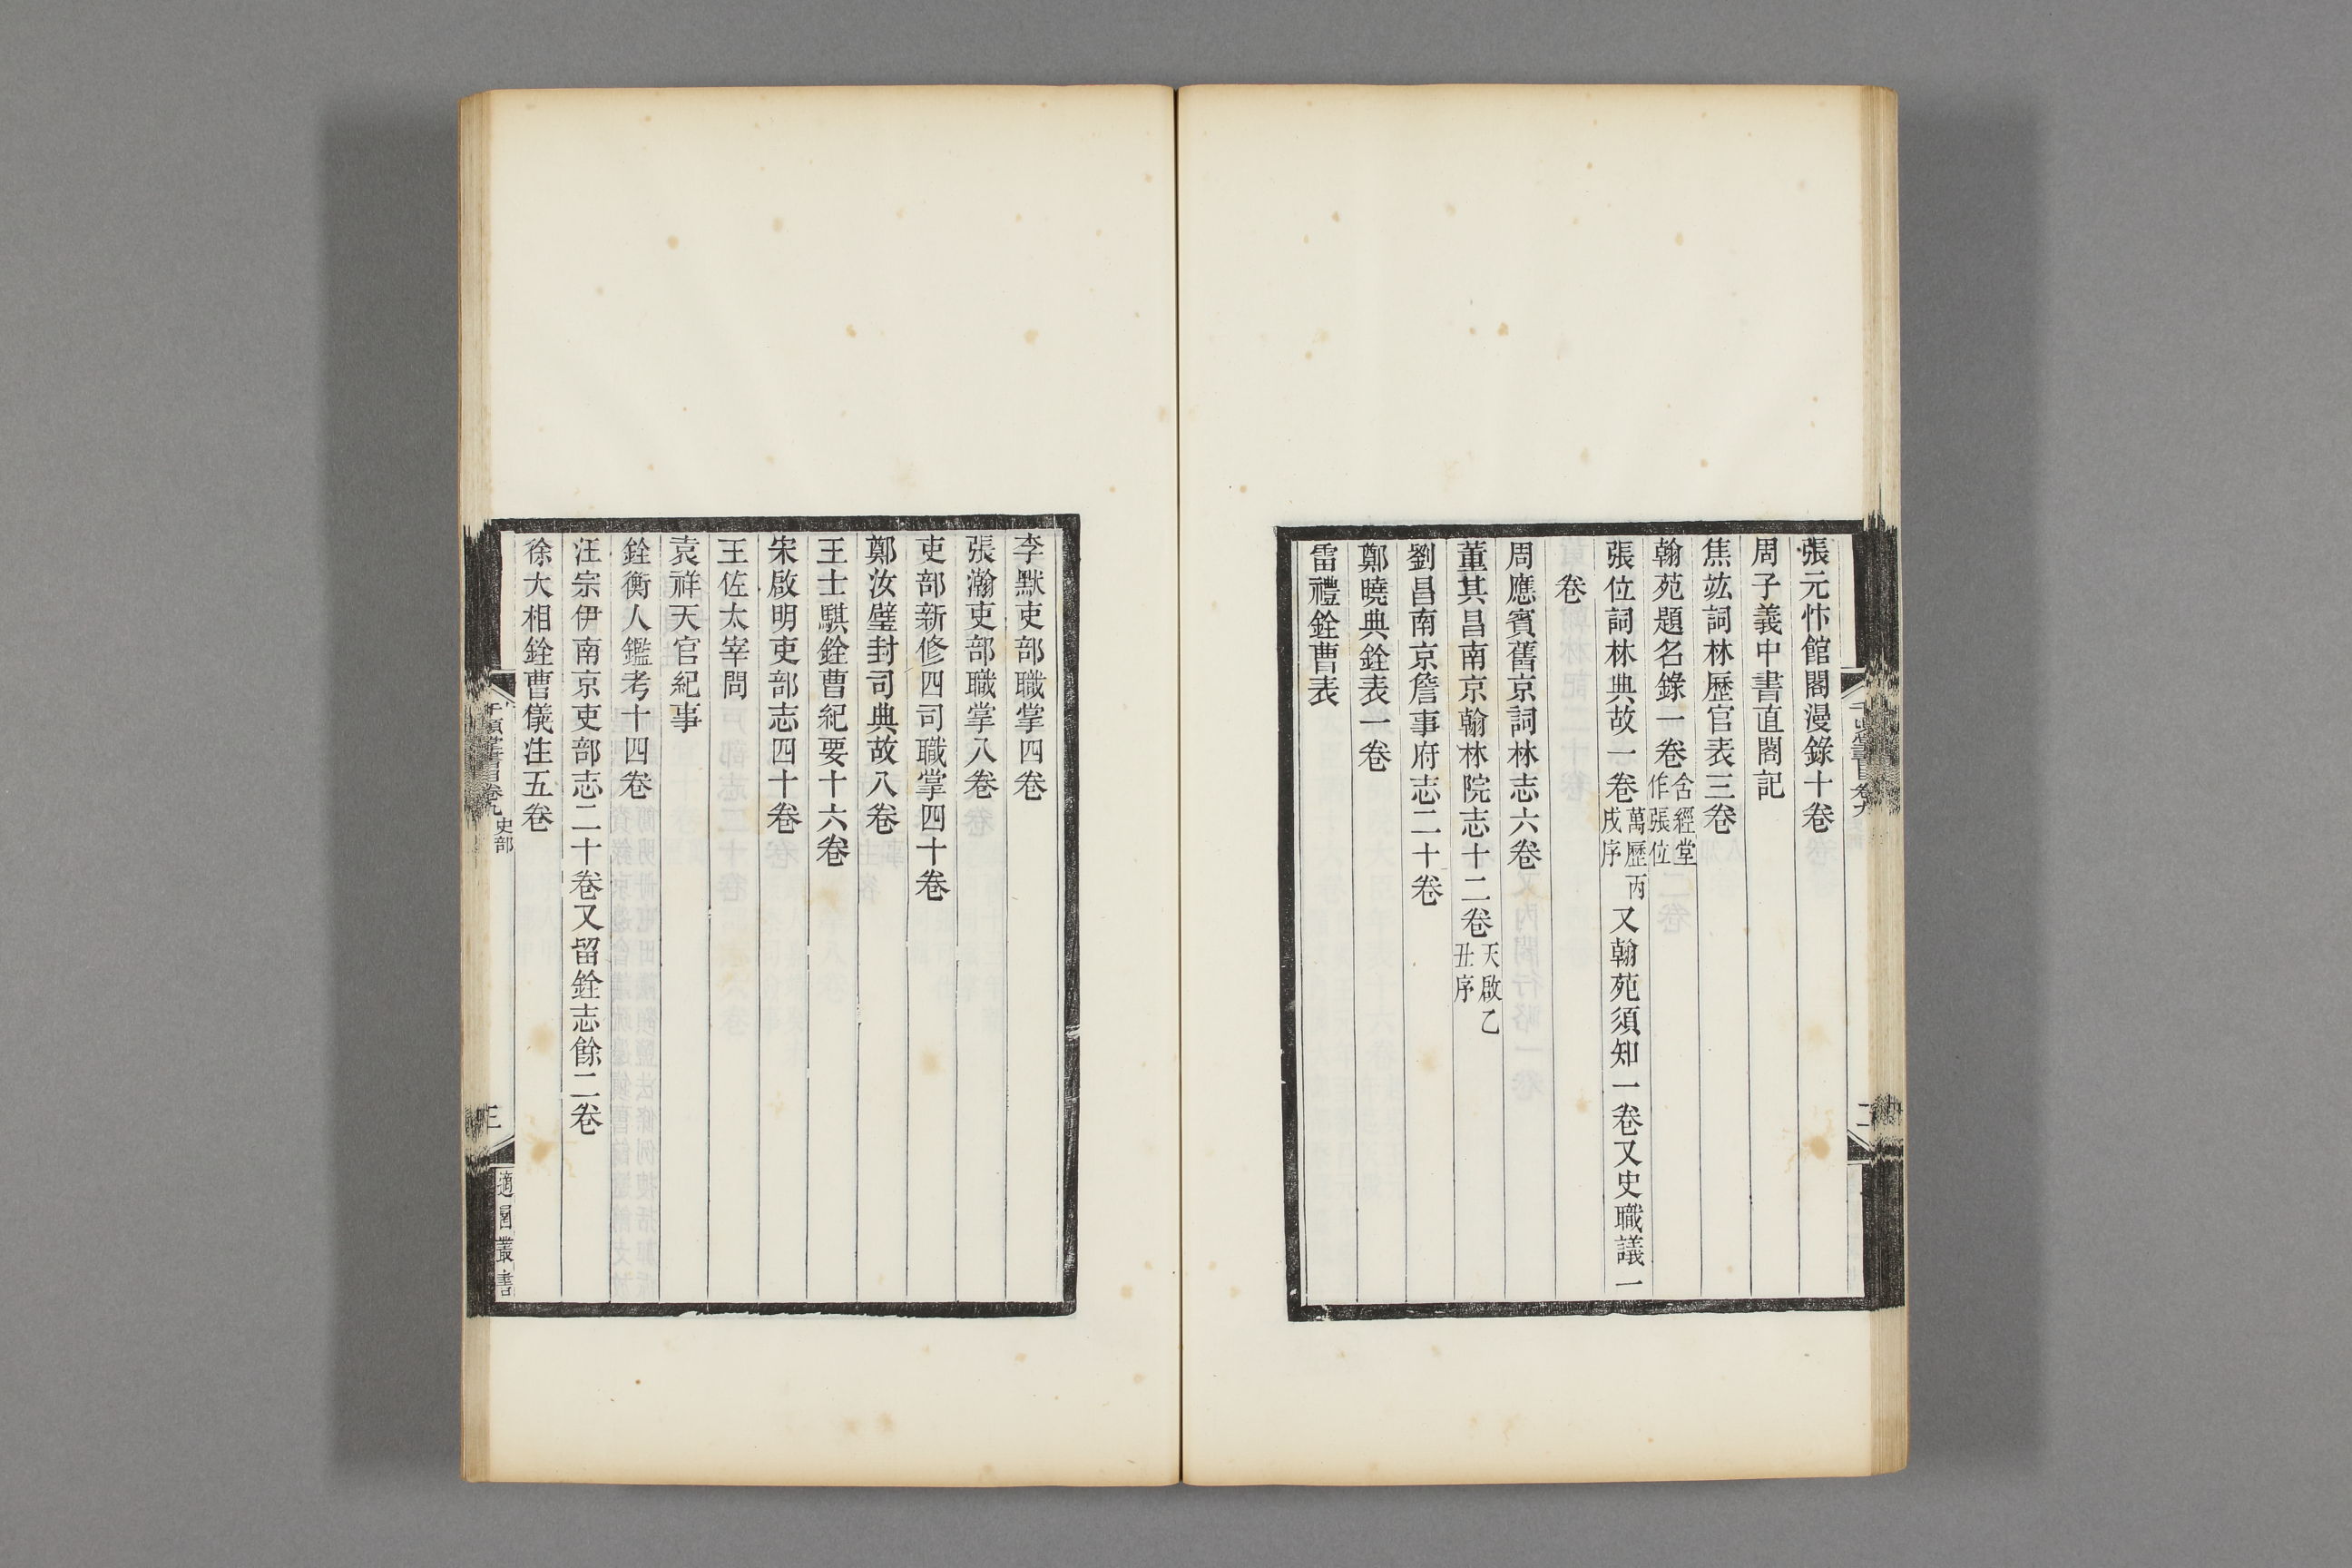 張元忭館閣漫錄十卷
周子義中書直閣記
焦竑詞林歷官表三卷
翰苑題名錄一卷舍經堂作張位
張位詞林典故一卷萬歷丙戌序又翰苑須知一卷又史職議一
卷
周應賓舊京詞林志六卷
董其昌南京翰林院志十二卷天啟乙丑序
劉昌南京詹事府志二十卷
鄭曉典銓表一卷
雷禮銓曹表
李默吏部職掌四卷
張瀚吏部職掌八卷
吏部新修四司職掌四十卷
鄭汝璧封司典故八卷
王士騏銓曹紀要十六卷
宋啟明吏部志四十卷
王佐太宰問
袁祥天官紀事
銓衡人鑑考十四卷
汪宗伊南京吏部志二十卷又留銓志餘二卷
徐大相銓曹儀注五卷
千頃堂書目卷九
史部
三
適園叢書